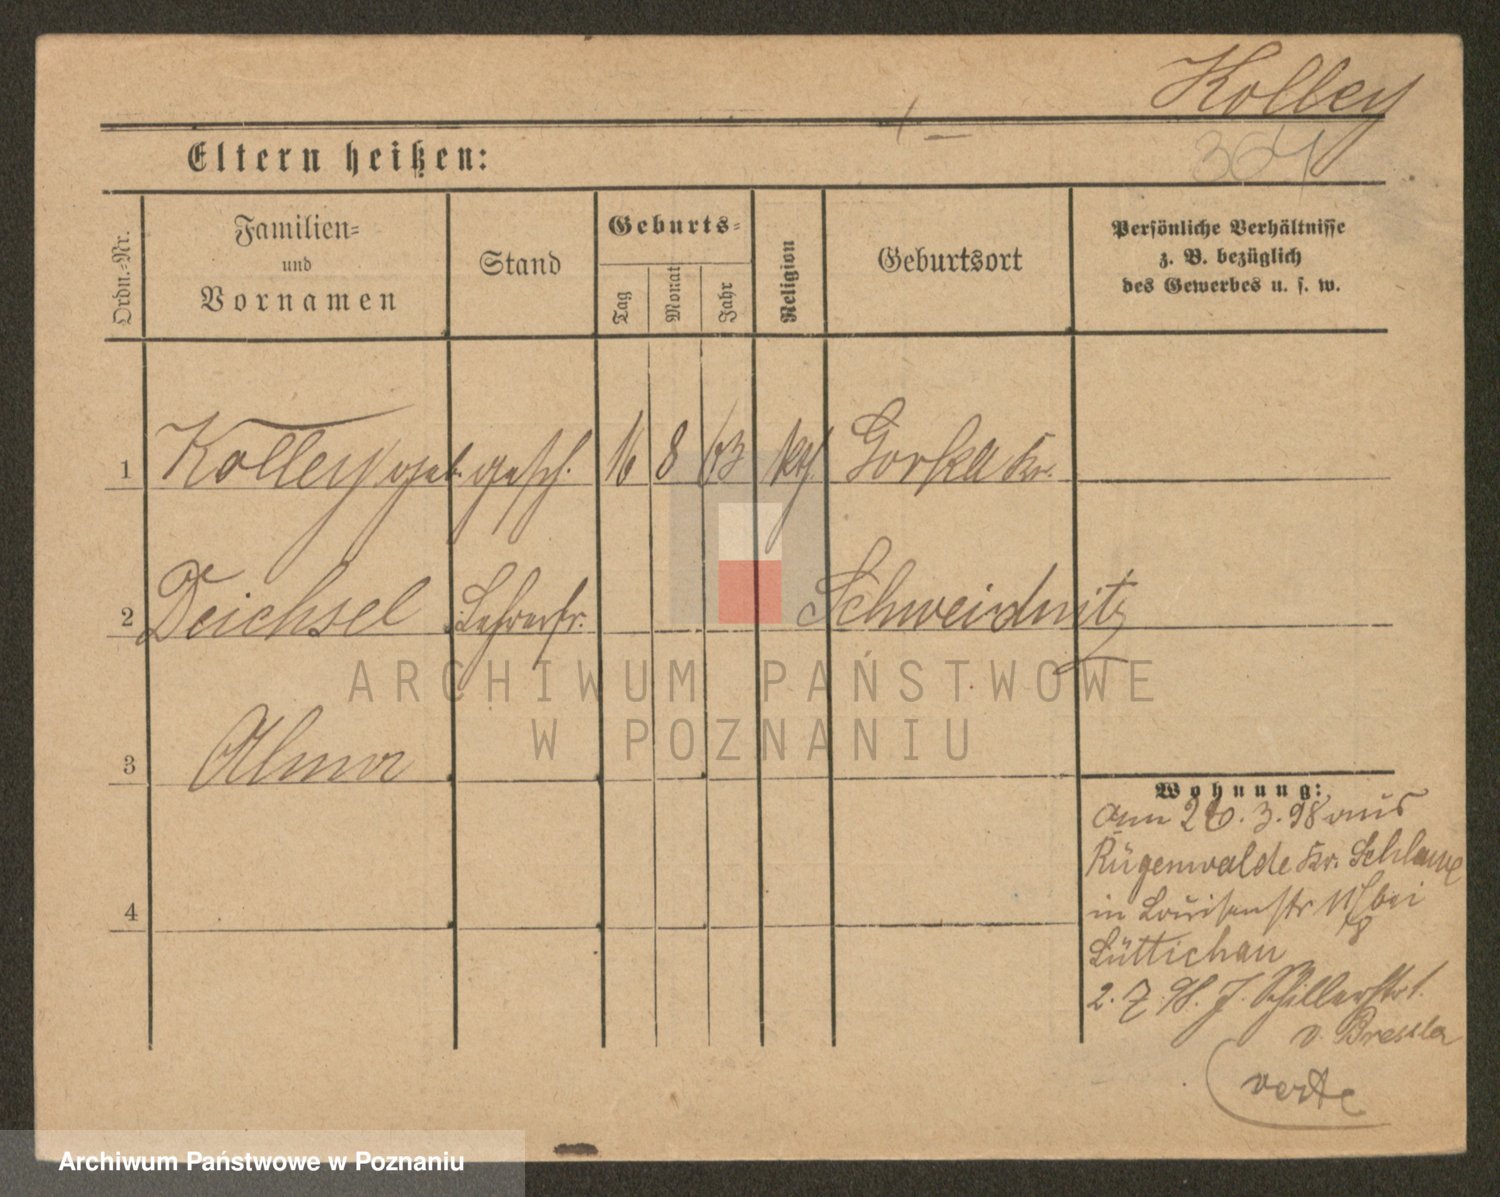 Kolley
364
Eltern heißen:
Ordn.=Nr.
Familien=
und
Vornamen
Stand
Geburts=
Tag
Monat
Jahr
Religion
Geburtsort
Persönliche Verhältnisse
z. B. bezüglich
des Gewerbes u. s. w.
1 Kolley geb. gesch. 16 8 63 kth. Gorka Kr.
2 Deichsel Lehrerfr. Schweidnitz
3 Alma
4
Wohnung:
am 26.3.98 aus
Rügenwalde Kr. Schlawe
in Louisenstr bei
Lüttichau
2.7.98. J. Schillerstr 1.
v. Bressler
verte
ARCHIWUM PAŃSTWOWE
W POZNANIU
Archiwum Państwowe w Poznaniu